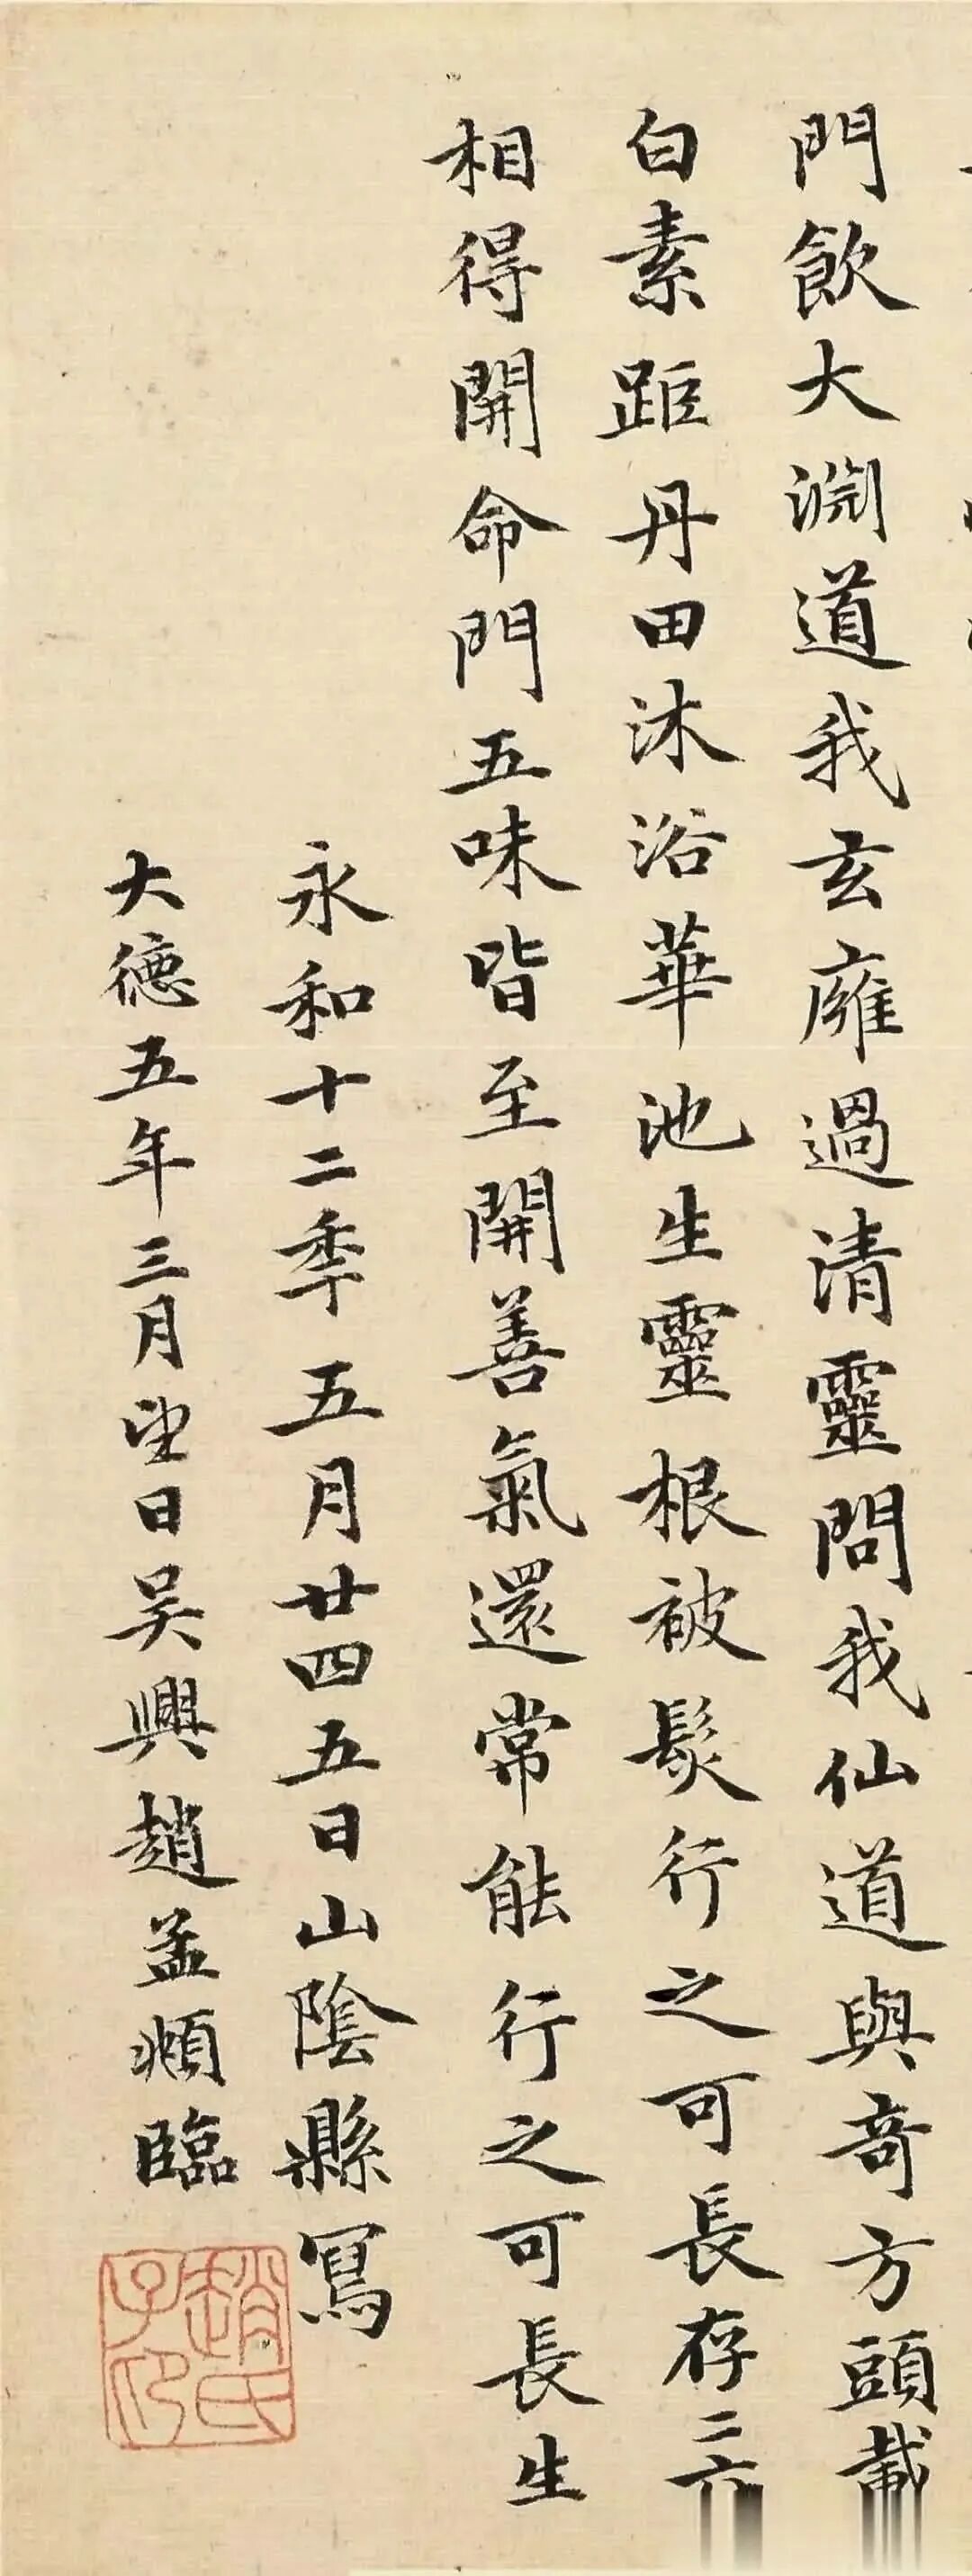 門飲大淵道我玄廱過清靈問我仙道與奇方頭載
白素距丹田沐浴華池生靈根被髮行之可長存二六
相得開命門五味皆至開善氣還常能行之可長生
永和十二秊五月廿四五日山陰縣寫
大德五年三月望日吴興趙孟頫臨
趙氏子印